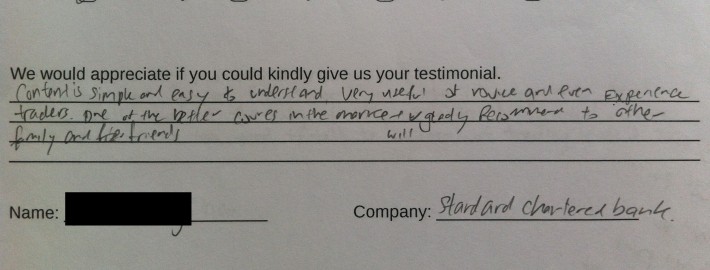 We would appreciate if you could kindly give us your testimonial.
Content is simple and easy to understand. Very useful at novice and even Experience
traders. One of the better courses in the market & gladly Recommend to other
family and friends will
Name:
Company: Standard chartered bank.